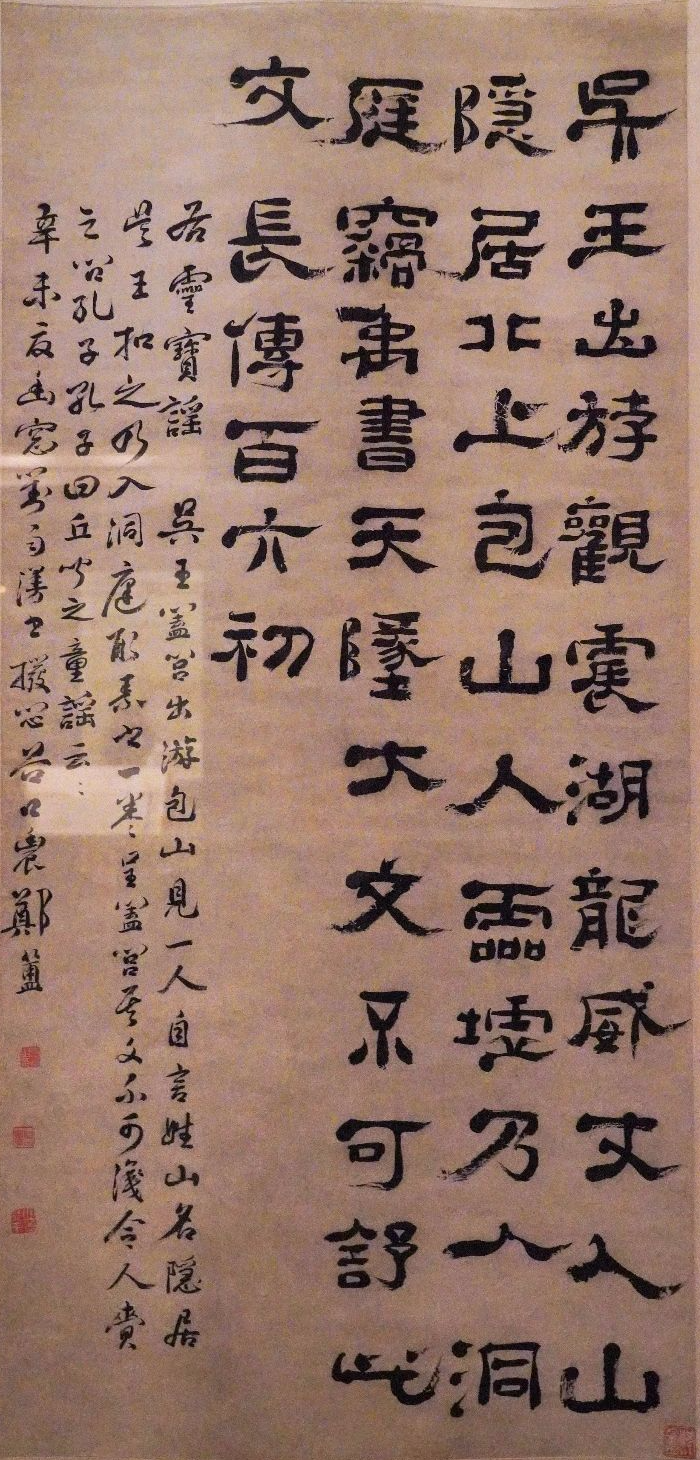 吳王出斿觀震湖龍威丈人山
隱居北上包山人靈墟乃入洞
庭竊禹書天墬大文不可舒此
文長傳百六初
右靈寶謠 吳王闔閭出游包山見一人自言姓山名隱居
吳王扣之乃入洞庭取素書一卷呈闔閭其文不可識令人賫
之問孔子孔子曰丘聞之童謠云云
辛未夏幽窓對雨漫書撥悶谷口農鄭簠